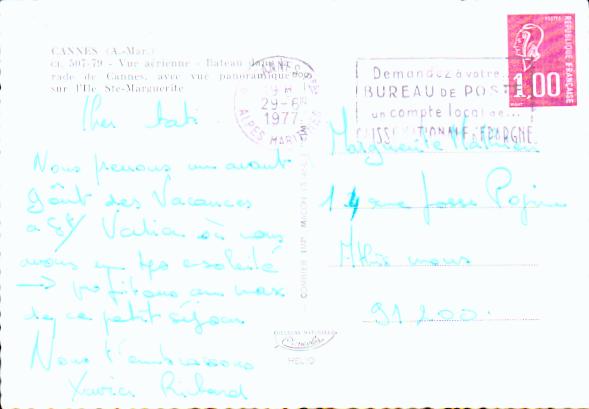 CANNES (A.-Mar.)
ci. 507-79 - Vue aérienne - Bateau dans la
rade de Cannes, avec vue panoramique
sur l'Ile Ste-Marguerite
CANNES
19 H
29-6
1977
ALPES MARITIMES
Demandez à votre...
BUREAU DE POSTE
un compte local de...
CAISSE NATIONALE D'EPARGNE
POSTES
RÉPUBLIQUE FRANÇAISE
1,00
Cher
Nous prenons un avant
goût des Vacances
à où nous
avons un tps ensoleillé
→ profitons au max
de ce petit séjour
Nous t'embrassons
Xavier Richard
Marguerite
14 rue Josse
Athis mons
91200.
COMBIER IMP. MACON
HELIO